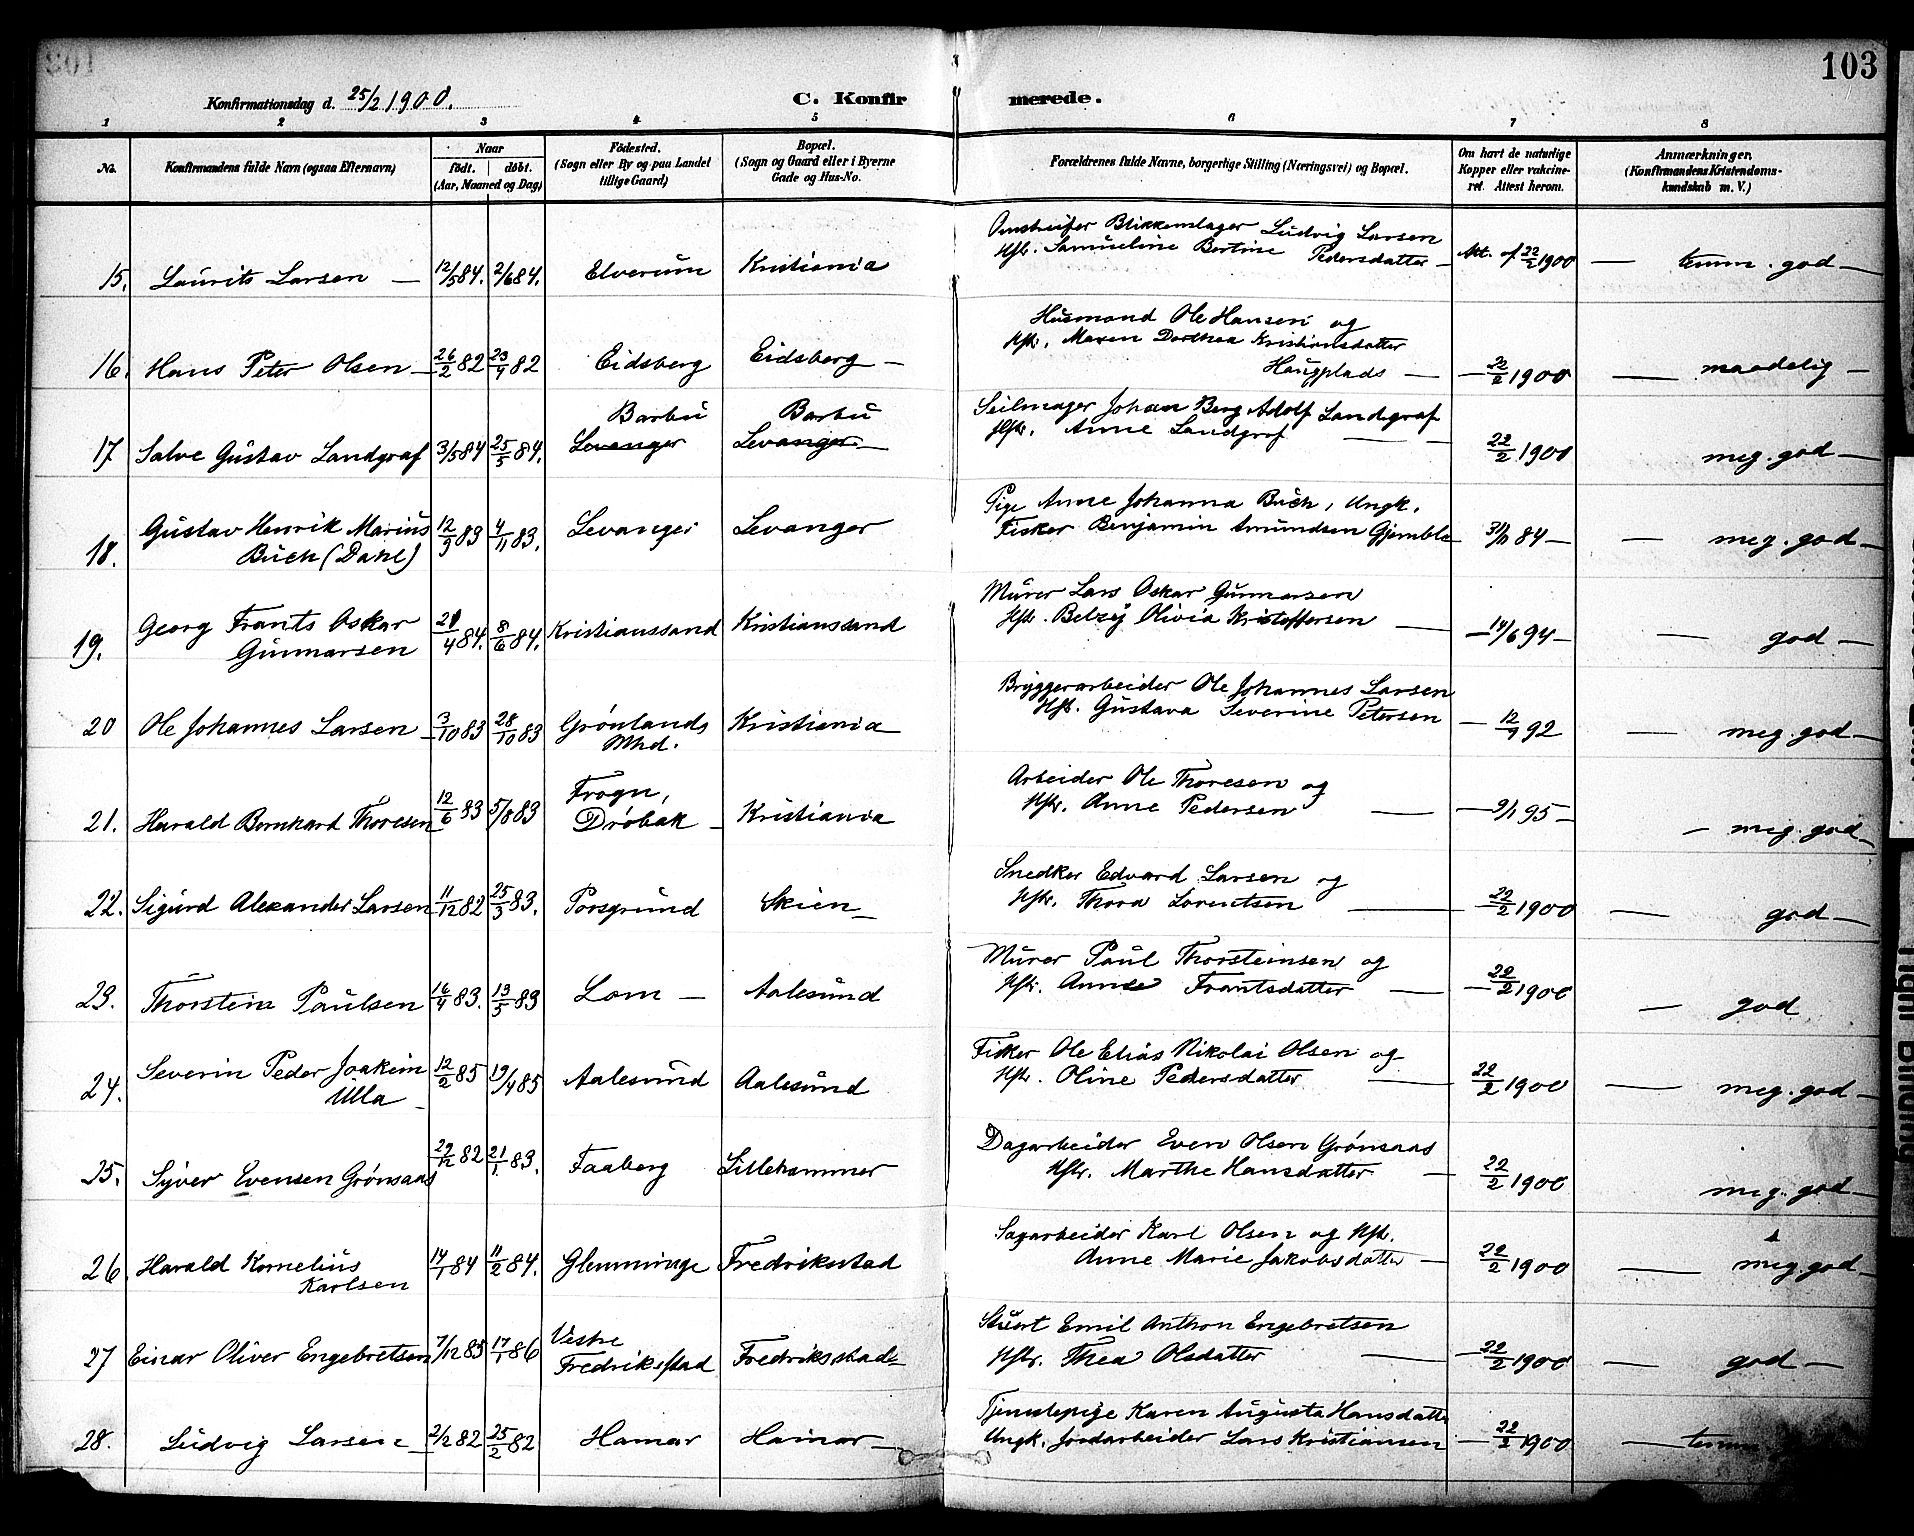 103
Konfirmationsdag d. 25/2 1900.
C. Konfirmerede.
1 2 3 4 5 6 7 8
No. Konfirmandens fulde Navn (ogsaa Efternavn) Naar født. døbt. (Aar, Maaned og Dag) Fødested. (Sogn eller By og paa Landet tillige Gaard) Bopæl. (Sogn og Gaard eller i Byerne Gade og Hus-No. Forældrenes fulde Navne, borgerlige Stilling (Næringsvei) og Bopæl. Om havt de naturlige Kopper eller vakcineret. Attest herom. Anmærkninger. (Konfirmandens Kristendomskundskab m. V.)
15. Laurits Larsen — 12/5 84. 2/6 84. Elverum Kristiania Blikkenslager Ludvig Larsen
Hstr. Samueline Bertine Pedersdatter — Att. af 22/2 1900 — temm. god —
16. Hans Peter Olsen — 26/2 82 23/4 82 Eidsberg Eidsberg — Husmand Ole Hansen og
Hstr. Maren Dorthea Kristiansdatter
Haugplads — — 22/2 1900 — maadelig —
17 Salve Gustav Landgraf 3/5 84 25/5 84. Barbu Levanger Barbu Levanger — Seilmager Johan Berg Adolf Landgraf
Hstr. Anne Landgraf — 22/2 1900 meg. god —
18. Gustav Henrik Marius
Buch (Dahl) 12/9 83 4/11 83. Levanger Levanger Pige Anne Johanna Buch, Ungk.
Fisker Benjamin Amundsen 84 — — meg. god —
19. Georg Frants Oskar
Gunnarsen 84. 8/6 84. Kristianssand Kristianssand Murer Lars Oskar Gunnarsen
Hstr. Betzy Olivia Kristoffersen — — 14/6 94 — — god —
20 Ole Johannes Larsen — 3/10 83 28/10 83 Grønlands
Mhd. Kristiania Bryggerarbeider Ole Johannes Larsen
Hst. Gustava Severine Petersen — 92 — meg. god —
21. Harald Bernhard Thoresen 12/6 83 5/8 83 Frogn,
Drøbak — Kristiania Arbeider Ole Thoresen og
Hstr. Anne Pedersen — — 9/1 95 — — meg. god —
22. Sigurd Alexander Larsen 11/12 82 25/3 83. Porsgrund Skien — Snedker Edvard Larsen og
Hstr. Thora Lorentsen — — 22/2 1900 — god —
23. Thorstein Paulsen 16/4 83. 13/5 83 Lom — Aalesund Murer Paul Thorsteinsen og
Hstr. Anne Frantsdatter — — 22/2 1900 — god
24. Severin Peder Joakim
Ulla — 12/2 85 19/4 85 Aalesund Aalesund Fisker Ole Elias Nikolai Olsen og
Hstr. Oline Pedersdatter — 22/2 1900 — meg. god —
25. Syver Evensen Grønsaas 29/12 82 21/1 83. Faaberg Lillehammer Dagarbeider Even Olsen Grønsaas
Hstr. Marthe Hansdatter — 22/2 1900 meg. god —
26 Harald Kornelius
Karlsen 14/1 84 11/2 84. Glemminge Fredriksstad Sagarbeider Karl Olsen og Hst.
Anne Marie Jakobsdatter — 22/2 1900 — meg. god —
27 Einar Oliver Engebretsen 7/12 85 17/1 86 Vestre
Fredriksstad Fredriksstad — Emil Anthon Engebretsen
Hstr. Thea Olsdatter — — 22/2 1900 — god —
28. Ludvig Larsen — 82 25/2 82 Hamar Hamar — Tjenestepige Karen Augusta Hansdatter
Ungk. Jordarbeider Lars Kristiansen — 22/2 1900 —